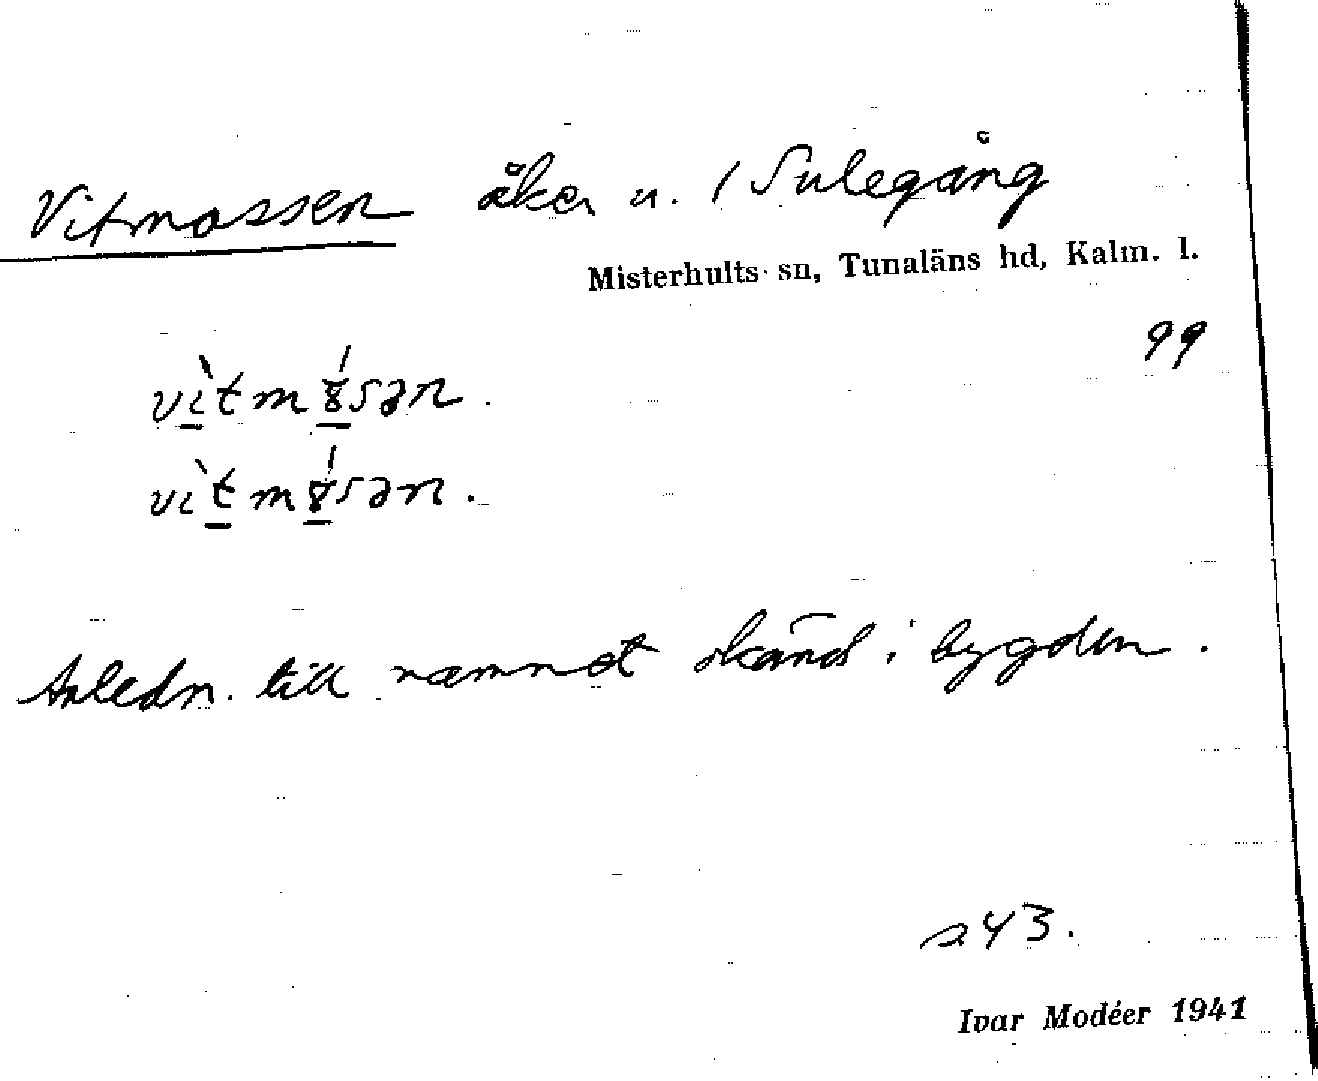 Vitmossen åker u. 1 Sulegång
Misterhults sn, Tunaläns hd, Kalm. l.
99
Anledn. till namnet okänd i bygden.
s 43.
Ivar Modéer 1941